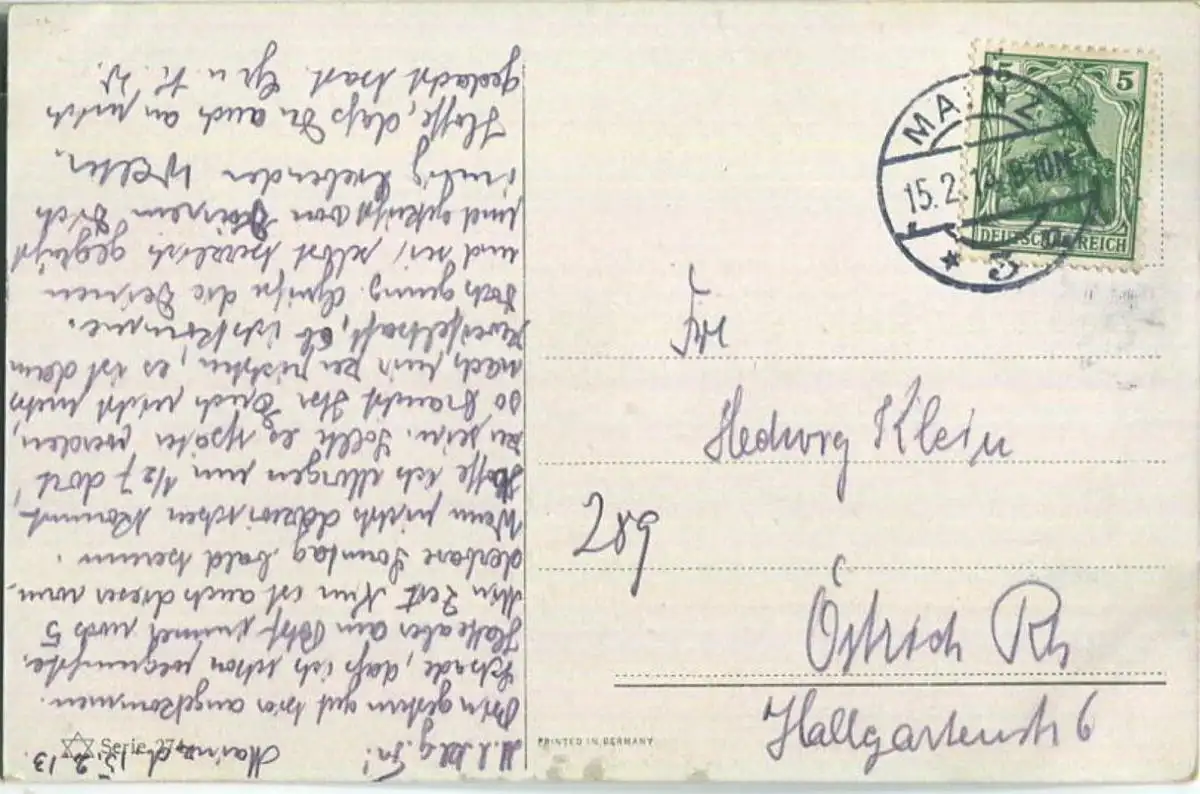 Mainz d. 15. 2. 13.
M. l. kl. g. Fr!
Bin gestern gut hier angekommen.
Schade, daß ich schon wegmußte.
Hatte aber am Bhf immer noch 5
Min Zeit Nun ist auch dieser wun-
derbare Sonntag bald herum.
Wenn nichts dazwischen kommt
hoffe ich Morgen um 1/2 7 dort
zu sein. Sollte es später werden,
so braucht Ihr Euch nicht
nach mir zu richten, es ist dann
zweifelhaft, ob ich komme.
Doch genug. Grüße die Deinen
und sei selbst herzlich gegrüßt
und geküßt von Deinem Dich
innig liebenden Walter.
Hoffe, daß Du auch an mich
gedacht hast. Gr. u. K. W.
Serie 274
PRINTED IN GERMANY
5 5
DEUTSCHES REICH
MAINZ
15.2.14. 9-10N
* 3
Frl
Hedwig Klein
289
Östrich Rh
Hallgartenstr 6